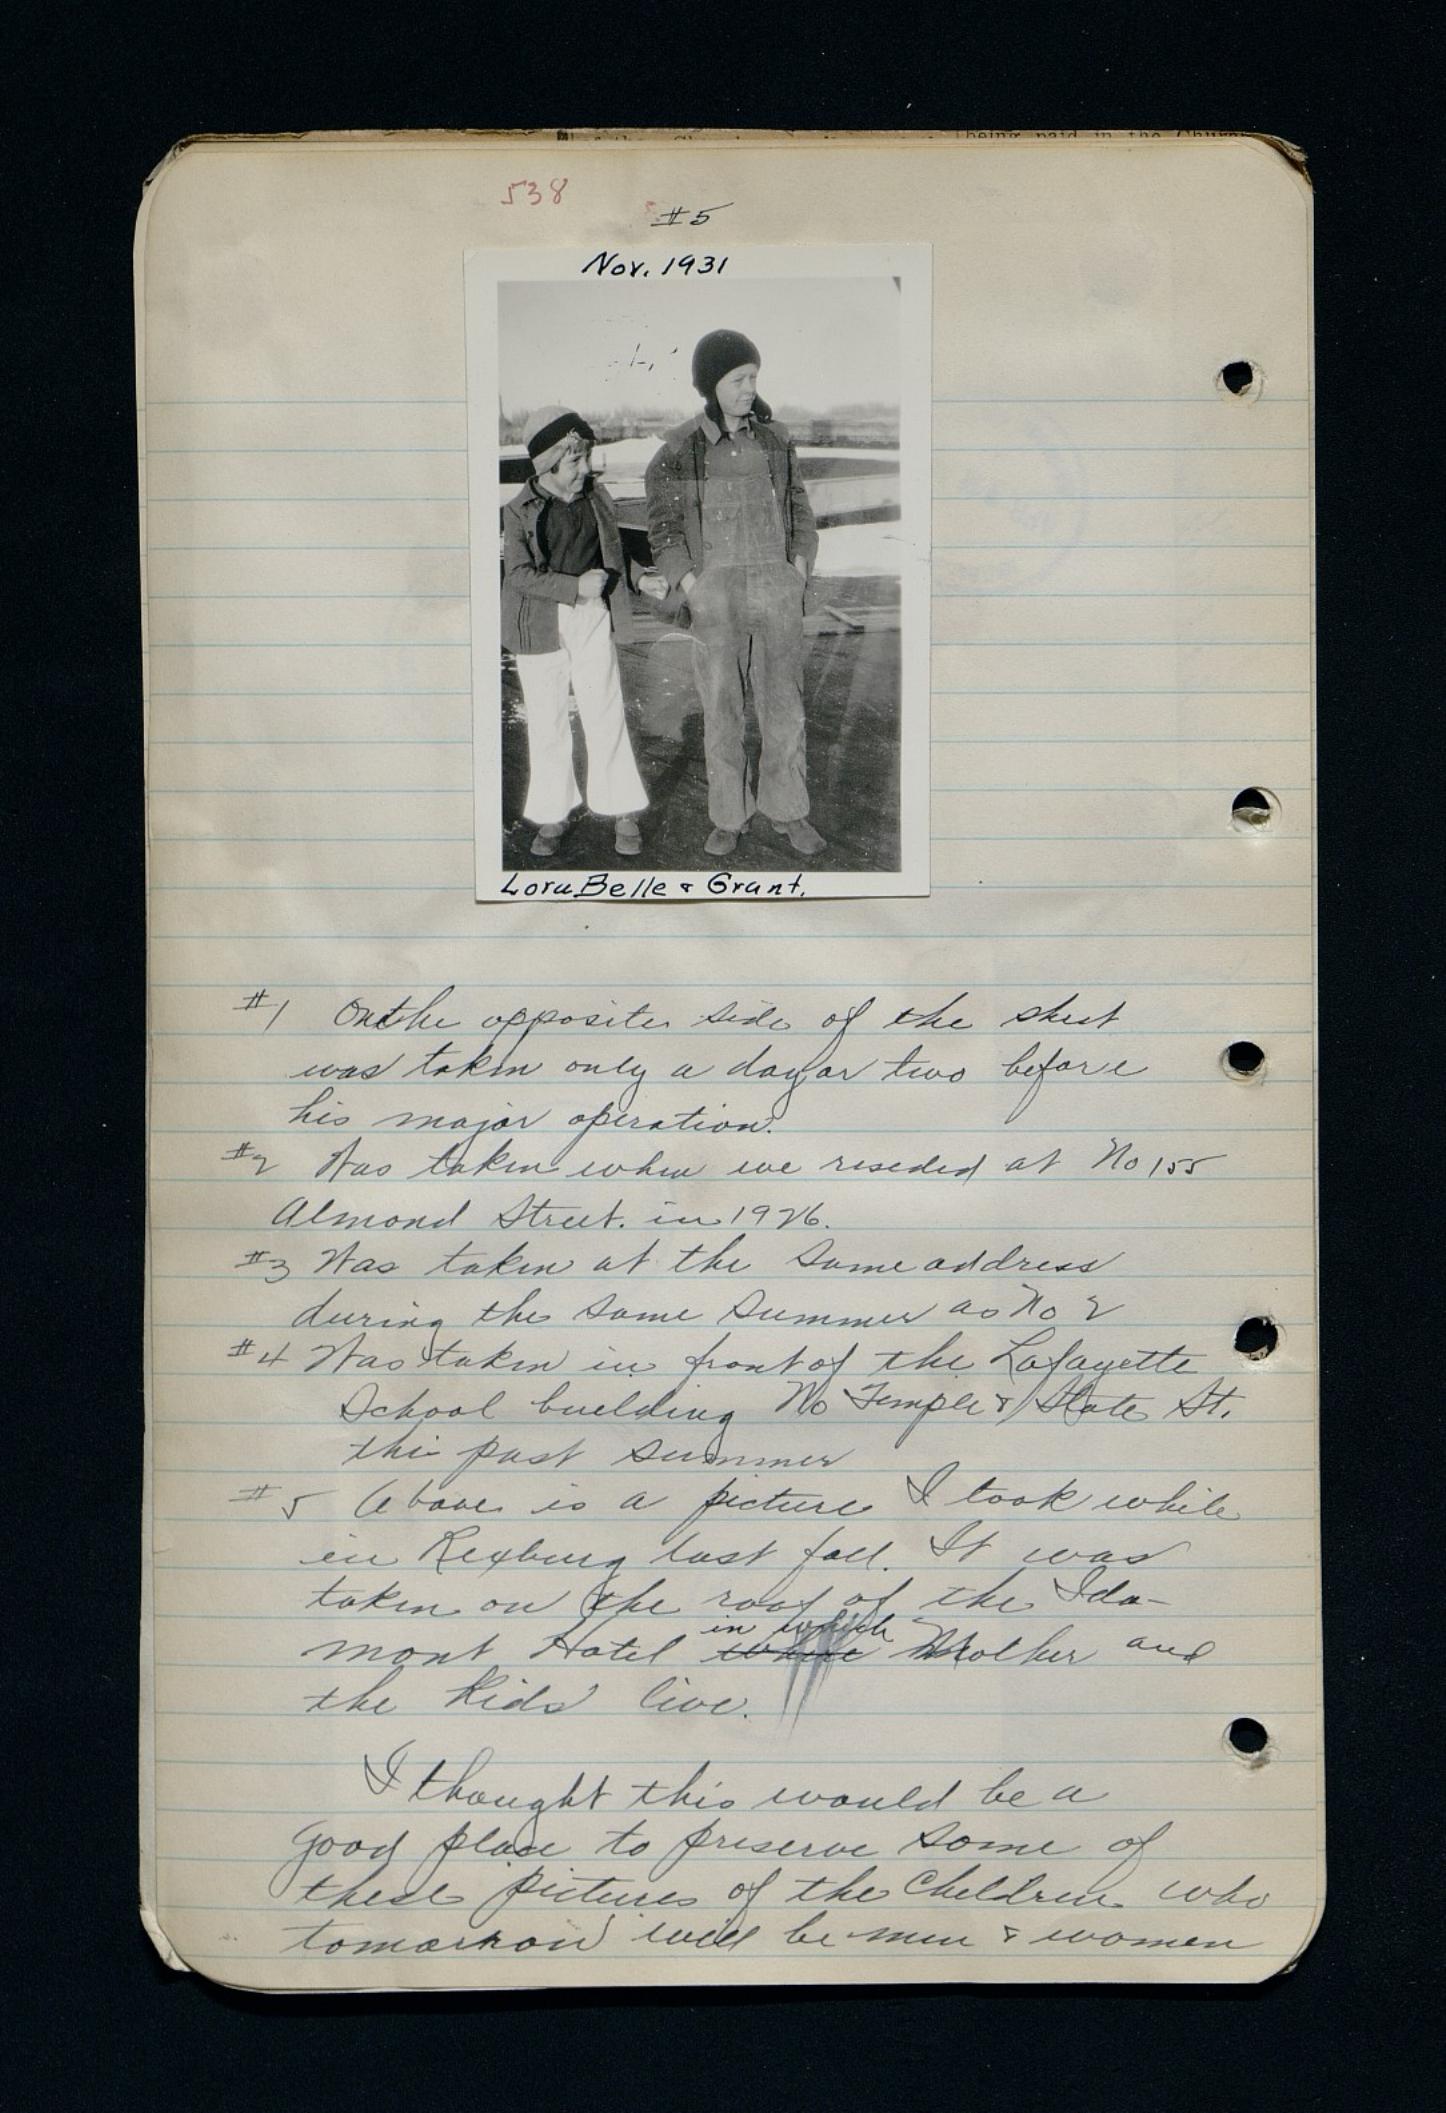 being paid in the Church
538
#5
Nov. 1931
LoraBelle & Grant.
#1 On the opposite side of the sheet
was taken only a day or two before
his major operation.
#2 Was taken when we reseded at No 155
Almond Street. in 1926.
#3 Was taken at the same address
during the same summer as No 2
#4 Was taken in front of the Lafayette
School building No Temple & State St.
this past summer
#5 Above is a picture I took while
in Rexburg last fall. It was
taken on the roof of the Ida-
in which
mont Hotel where Mother and
the Kids live.
I thought this would be a
good place to preserve some of
these pictures of the children who
tomorrow will be men & women